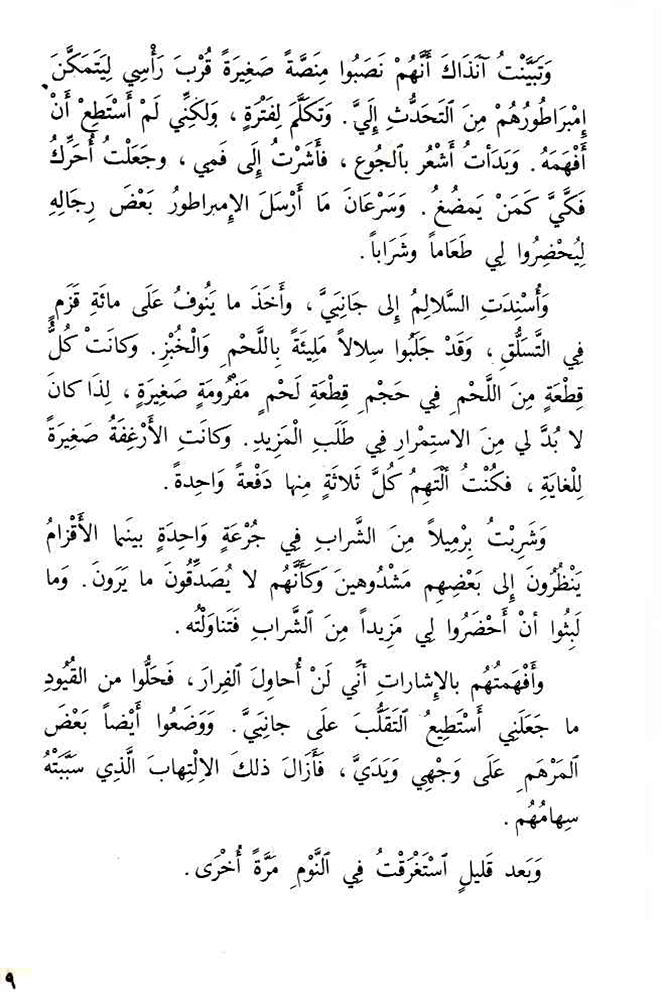 وَتَبَيَّنْتُ آنَذَاكَ أَنَّهُمْ نَصَبُوا مِنَصَّةً صَغِيرَةً قُرْبَ رَأْسِي لِيَتَمَكَّنَ
إِمْبَرَاطُورُهُمْ مِنَ ٱلتَحَدُّثِ إِلَيَّ. وَتَكَلَّمَ لِفَتْرَةٍ ، وَلكِنِّي لَمْ أَسْتَطِعْ أَنْ
أَفْهَمَهُ. وَبَدَأتُ أَشْعُر بالجُوعِ ، فَأَشَرْتُ إِلَى فَمِي ، وجَعَلْتُ أُحَرِّكُ
فَكَّيَّ كَمَنْ يَمضُغُ. وَسَرْعَانَ مَا أَرْسَلَ الإمبراطورُ بَعْضَ رِجَالِهِ
لِيُحْضِرُوا لِي طَعَاماً وشَرَاباً.
وَأُسْنِدَتِ السَّلالِمُ إلى جَانِبَيَّ ، وأَخَذَ ما يَنُوفُ عَلَى مائَةِ قَزَمٍ
فِي التَّسَلُّقِ ، وَقَدْ جَلَبُوا سِلالاً مَلِيئَةً بِاللَّحْمِ وَالْخُبْزِ. وكَانَتْ كُلُّ
قِطْعَةٍ مِنَ اللَّحْمِ فِي حَجْمِ قِطْعَةِ لَحْمٍ مَفْرُومَةٍ صَغِيرَةٍ ، لِذَا كانَ
لا بُدَّ لي مِنَ الاستِمْرارِ فِي طَلَبِ الْمَزِيدِ. وَكَانَتِ الأَرْغِفَةُ صَغِيرَةً
لِلْغَايَةِ ، فكُنْتُ أَلْتَهِمُ كُلَّ ثَلاثَةٍ مِنها دَفْعةً وَاحِدةً.
وَشَرِبْتُ بِرْمِيلاً مِنَ الشَّرابِ فِي جُرْعَةٍ وَاحِدَةٍ بينَما الأَقْزامُ
يَنْظُرُونَ إلى بَعْضِهِم مَشْدُوهينَ وَكَأَنَّهُم لا يُصَدِّقُونَ ما يَرَونَ. وَما
لَبِثُوا أنْ أَحْضَرُوا لِي مَزِيداً مِنَ الشَّرابِ فَتَناوَلْتُه.
وأَفْهَمتُهُم بالإشاراتِ أنِّي لَنْ أُحاوِلَ الفِرارَ، فَحَلُّوا من القُيُودِ
ما جَعَلَنِي أَسْتَطِيعُ ٱلتَقَلُّبَ علَى جانِبَيَّ. وَوَضَعُوا أَيْضاً بَعْضَ
ٱلمَرْهَمِ عَلَى وَجْهِي وَيَدَيَّ، فَأَزَالَ ذلكَ الاِلْتِهابَ الَّذِي سَبَّبَتْهُ
سِهامُهُم.
وَبَعد قَلِيلٍ ٱسْتَغْرَقْتُ فِي ٱلنَّوْمِ مَرَّةً أُخْرَى.
٩